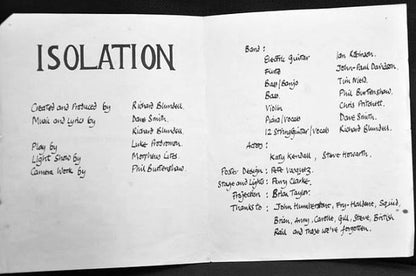 ISOLATION
Created and Produced by Richard Blundell.
Music and Lyrics by Dave Smith.
Richard Blundell.
Play by Luke
Light Show by Matthew
Camera Work by Phil Buttenshaw.
Band :
Electric Guitar Ian Robinson.
Flute John-Paul Davidson.
Bass/Banjo Tim Nield.
Bass. Phil Buttenshaw.
Violin Chris Pritchett.
Piano/Vocals Dave Smith.
12 String Guitar/Vocals Richard Blundell.
Actors :
Katy Kendall, Steve Howarth.
Poster Design : Pete
Stage and Lights : Perry Clarke.
Projection : Brian Taylor.
Thanks to : John Humberstone, Fry-Haldane, Squid,
Brian, Amy, Carolle, Gill, Steve, British
Rail and those we've forgotten.